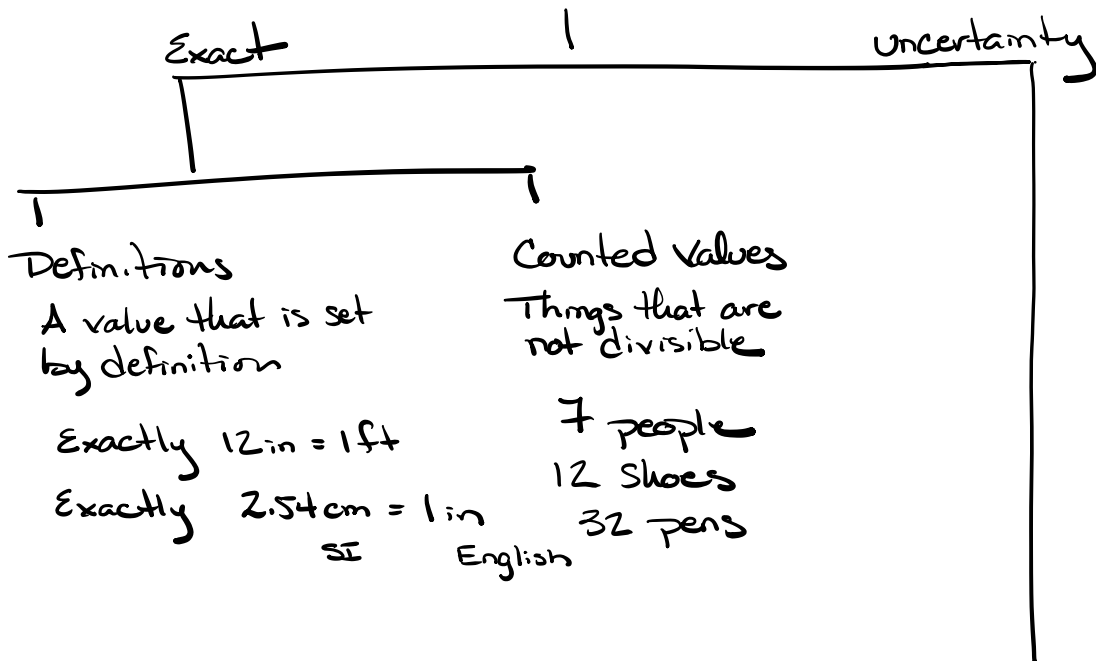 Exact
uncertainty
Definitions
A value that is set
by definition
Exactly 12in = 1ft
Exactly 2.54cm = 1 in
SI English
Counted values
Things that are
not divisible
7 people
12 shoes
32 pens